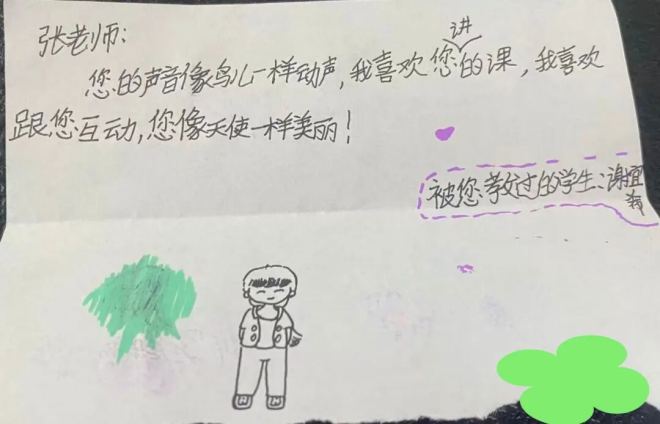 张老师:
您的声音像鸟儿一样动声,我喜欢您讲的课,我喜欢
跟您互动,您像天使一样美丽!
被您教过的学生:谢宜